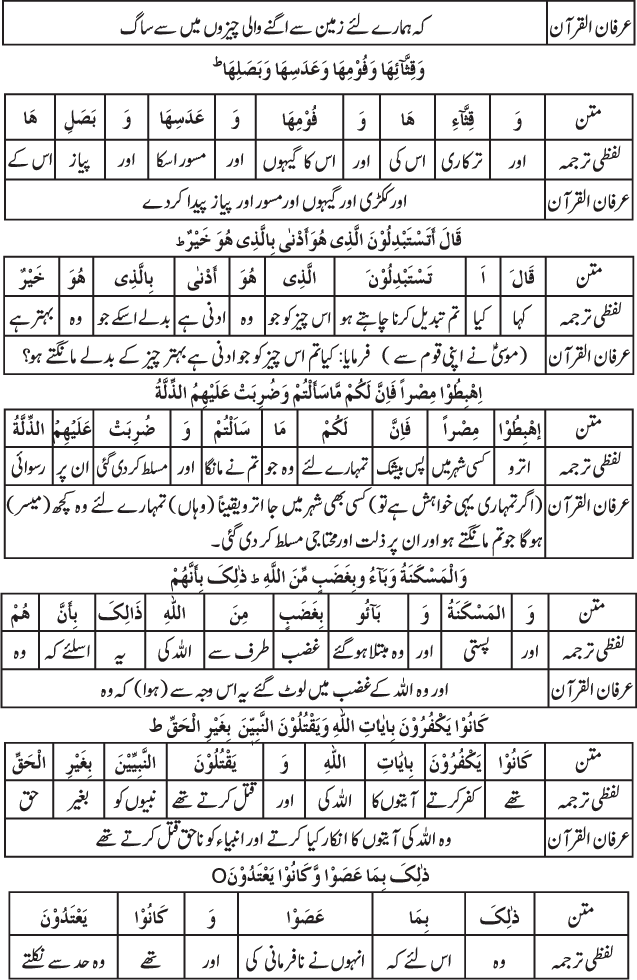 عرفان القرآن کہ ہمارے لئے زمین سے اگنے والی چیزوں میں سے ساگ
وَقِثَّآئِهَا وَفُوْمِهَا وَعَدَسِهَا وَبَصَلِهَا ط
متن وَ قِثَّآءِ هَا وَ فُوْمِهَا وَ عَدَسِهَا وَ بَصَلِ هَا
لفظی ترجمہ اور ترکاری اس کی اور اس کا گیہوں اور مسور اسکا اور پیاز اس کے
عرفان القرآن اور ککڑی اور گیہوں اور مسور اور پیاز پیدا کر دے
قَالَ أَتَسْتَبْدِلُوْنَ الَّذِی هُوَ أَدْنٰی بِالَّذِی هُوَ خَيْرٌ ط
متن قَالَ اَ تَسْتَبْدِلُوْنَ الَّذِی هُوَ أَدْنٰی بِالَّذِی هُوَ خَيْرٌ
لفظی ترجمہ کہا کیا تم تبدیل کرنا چاہتے ہو اس چیز کو جو وہ ادنی ہے بدلے اسکے جو وہ بہتر ہے
عرفان القرآن (موسیٰؑ نے اپنی قوم سے) فرمایا: کیا تم اس چیز کو جو ادنی ہے بہتر چیز کے بدلے مانگتے ہو؟
اِهْبِطُوْا مِصْراً فَاِنَّ لَکُمْ مَّاسَأَلْتُمْ وَضُرِبَتْ عَلَيْهِمُ الذِّلَّةُ
متن اِهْبِطُوْا مِصْراً فَاِنَّ لَکُمْ مَا سَأَلْتُمْ وَ ضُرِبَتْ عَلَيْهِمُ الذِّلَّةُ
لفظی ترجمہ اترو کسی شہر میں پس بیشک تمہارے لئے وہ جو تم نے مانگا اور مسلط کر دی گئی ان پر رسوائی
عرفان القرآن (اگر تمہاری یہی خواہش ہے تو) کسی بھی شہر میں جا اترو یقیناً (وہاں) تمہارے لئے وہ کچھ (میسر)
ہو گا جو تم مانگتے ہو اور ان پر ذلت اور محتاجی مسلط کر دی گئی۔
وَالْمَسْکَنَةُ وَبَآءُ وبِغَضَبٍ مِّنَ اللَّهِ ط ذٰلِکَ بِأَنَّهُمْ
متن وَ المَسْکَنَةُ وَ بَآئُو بِغَضَبٍ مِنَ اللهِ ذَالِکَ بِأَنَّ هُمْ
لفظی ترجمہ اور پستی اور وہ مبتلا ہو گئے غضب طرف سے اللہ کی یہ اسلئے کہ وہ
عرفان القرآن اور وہ اللہ کے غضب میں لوٹ گئے یہ اس وجہ سے (ہوا) کہ وہ
کَانُوْا يَکْفُرُوْنَ بِاٰيَاتِ اللهِ وَيَقْتُلُوْنَ النَّبِيِّيْنَ بِغَيْرِ الْحَقِّ ط
متن کَانُوْا يَکْفُرُوْنَ بِاٰيَاتِ اللهِ وَ يَقْتُلُوْنَ النَّبِيِّيْنَ بِغَيْرِ الْحَقِّ
لفظی ترجمہ تھے کفر کرتے آیتوں کا اللہ کی اور قتل کرتے تھے نبیوں کو بغیر حق
عرفان القرآن وہ اللہ کی آیتوں کا انکار کیا کرتے اور انبیاء کو ناحق قتل کرتے تھے
ذٰلِکَ بِمَا عَصَوْا وَّکَانُوْا يَعْتَدُوْنَO
متن ذٰلِکَ بِمَا عَصَوْا وَ کَانُوْا يَعْتَدُوْنَ
لفظی ترجمہ وہ اس لئے کہ انہوں نے نافرمانی کی اور تھے وہ حد سے نکلتے